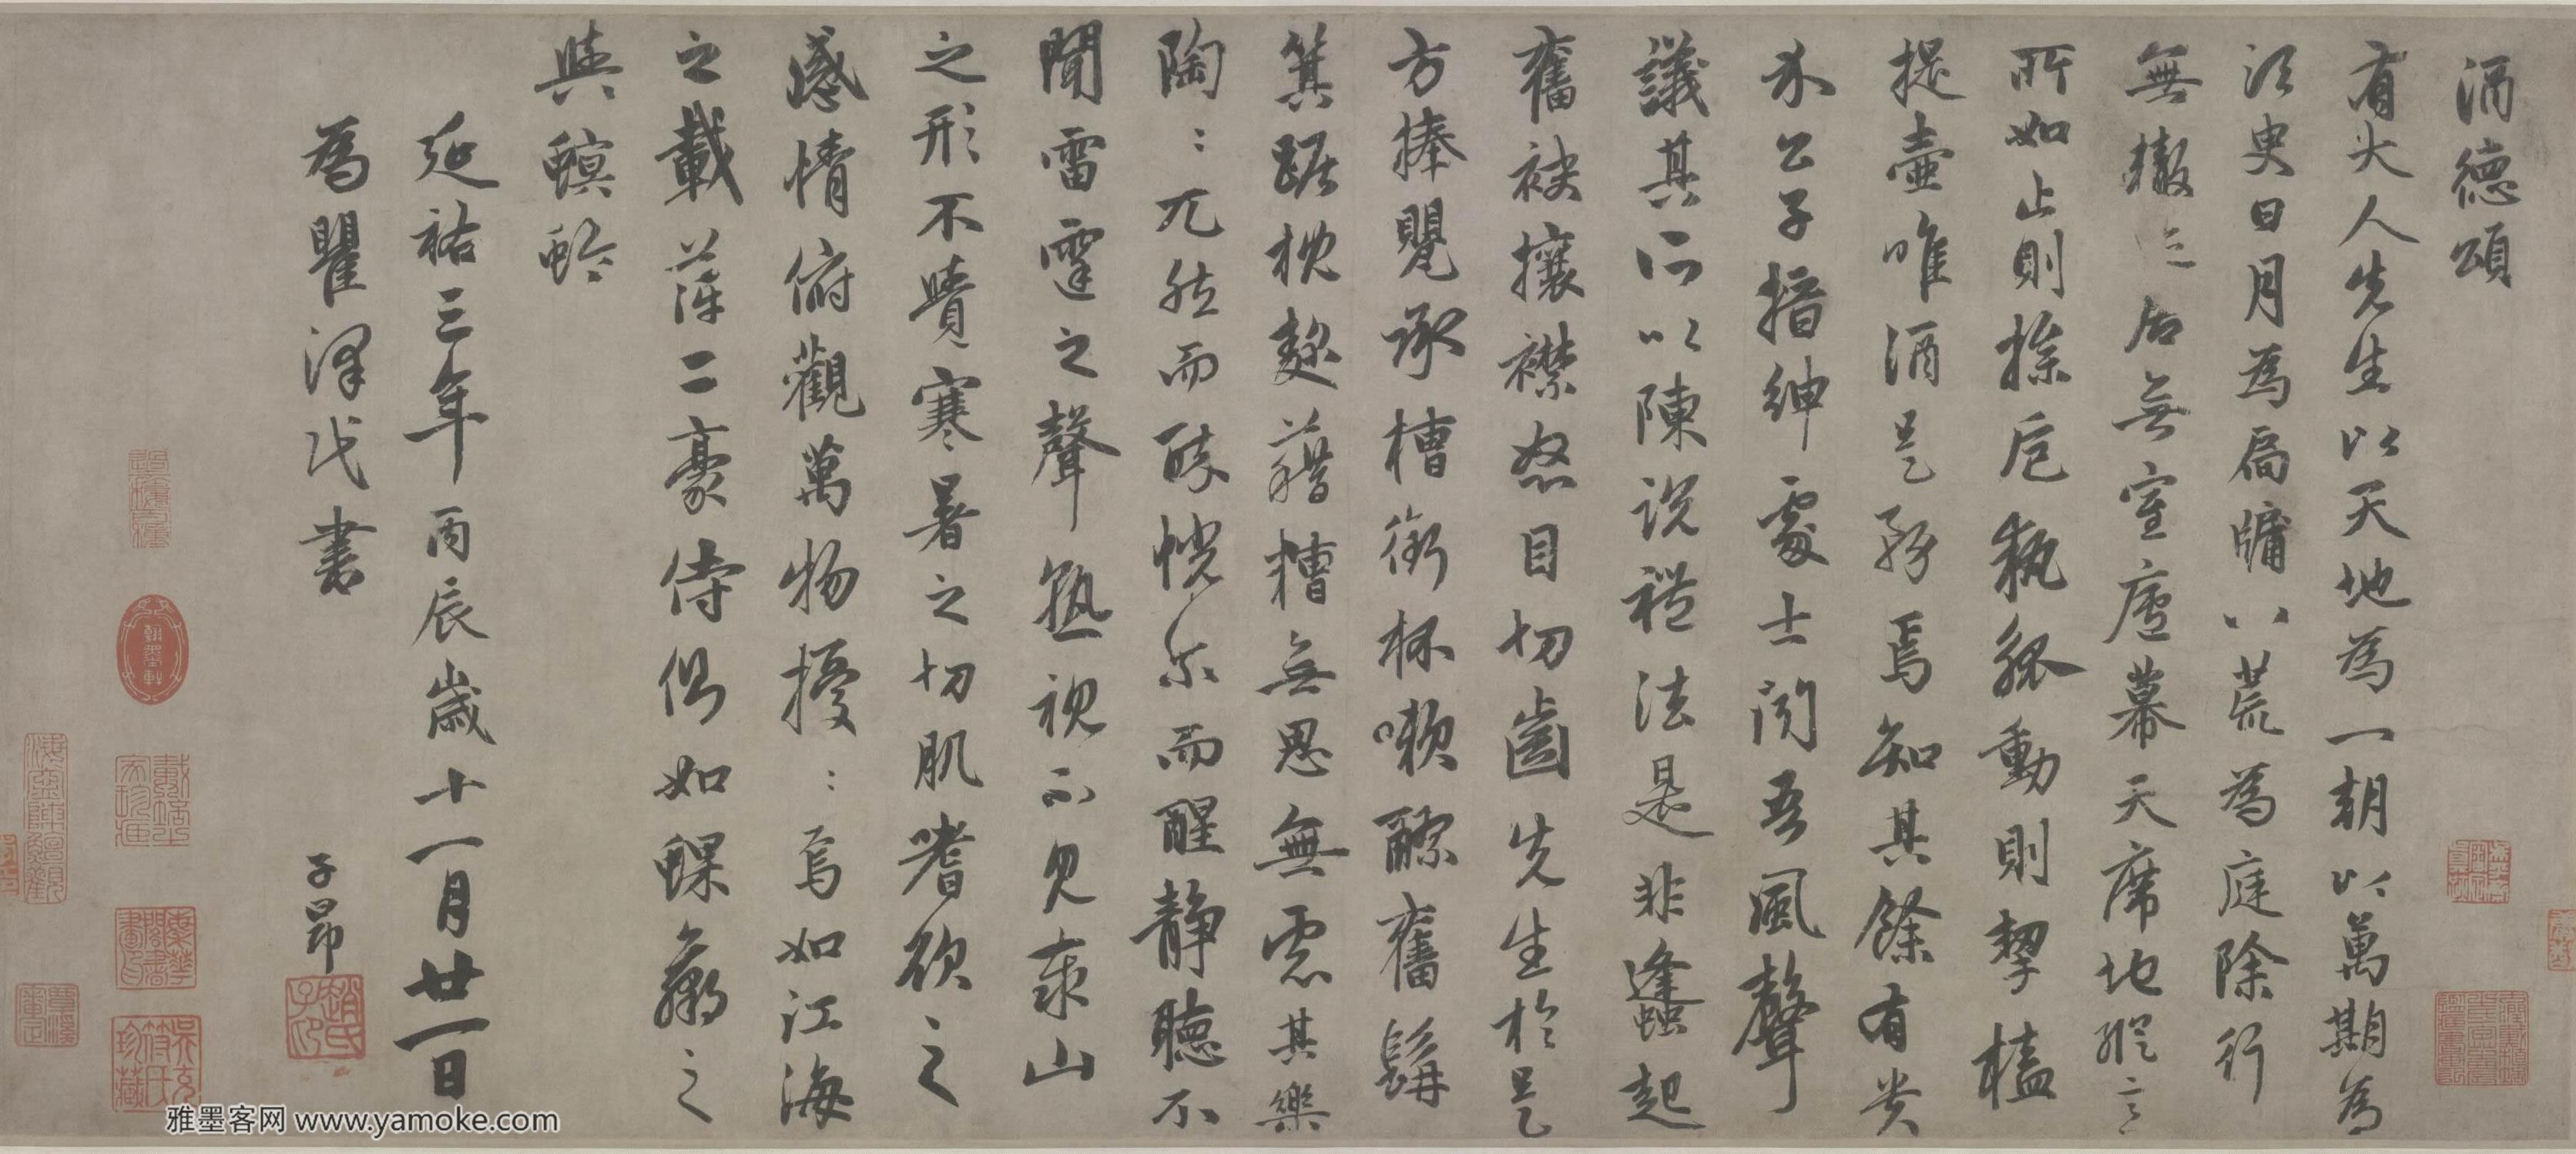 酒德頌
有大人先生以天地為一朝以萬期為
須臾日月為扃牖八荒為庭除行
無轍迹居無室廬幕天席地縱意
所如止則操卮執觚動則挈榼
提壺唯酒是務焉知其餘有貴
介公子搢紳處士聞吾風聲
議其所以陳說禮法是非逢蠭起
奮袂攘襟怒目切齒先生於是
方捧甖承槽銜杯嗽醪奮髯
箕踞枕麴藉糟無思無慮其樂
陶：兀然而醉恍尔而醒静聽不
聞雷霆之聲熟視不見泰山
之形不覺寒暑之切肌嗜欲之
感情俯觀萬物擾：焉如江海
之載萍二豪侍側如蜾蠃之
與螟蛉
延祐三年丙辰歲十一月廿一日
為瞿澤民書
子昂
趙氏子印
雅墨客网 www.yamoke.com